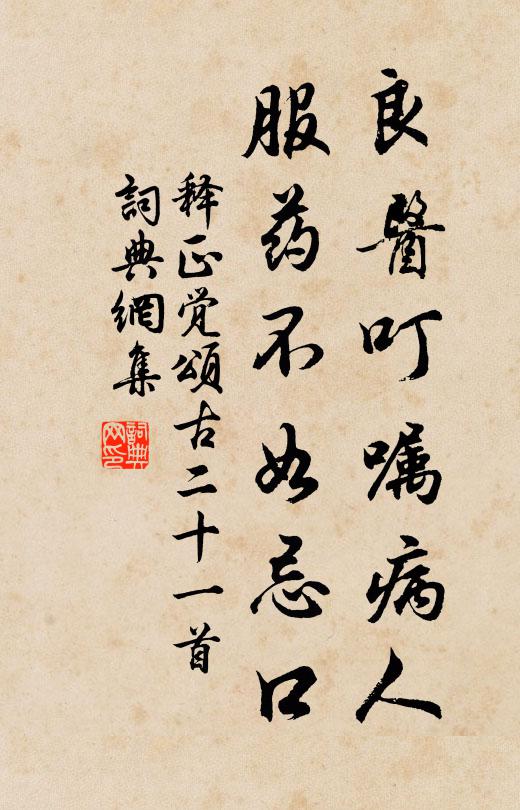 良醫叮嘱病人
服药不如忌口
释正觉頌古二十一首
詞典網集
詞典网印